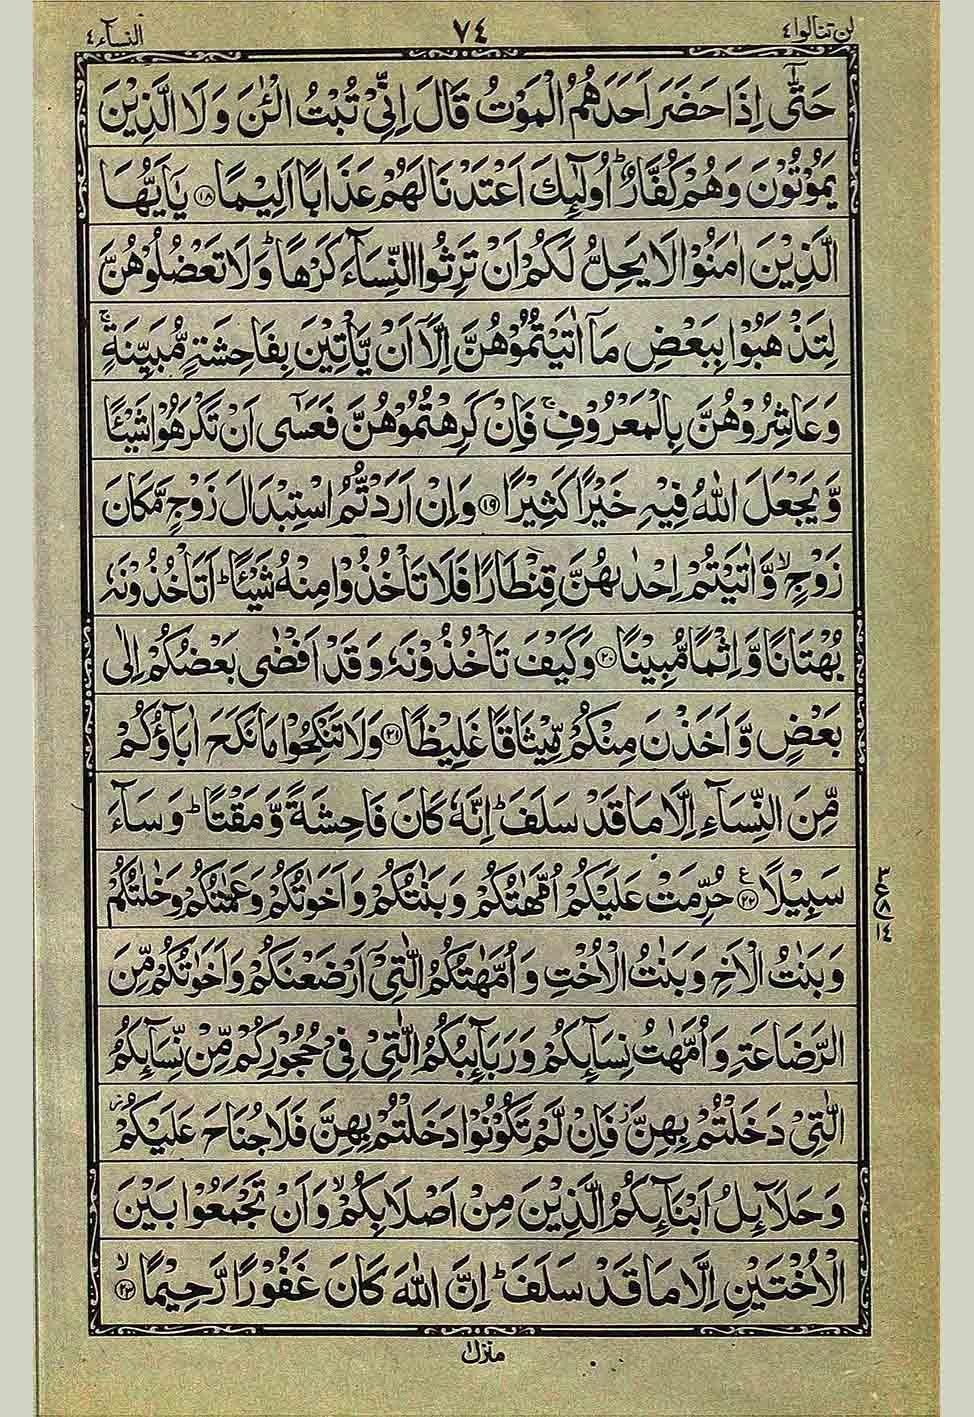 لن تنالوا ٤ ٧٤ النسآء ٤
حَتّٰۤى اِذَا حَضَرَ اَحَدَهُمُ الْمَوْتُ قَالَ اِنِّىْ تُبْتُ الْـٰٔنَ وَ لَا الَّذِيْنَ
يَمُوْتُوْنَ وَ هُمْ كُفَّارٌ ؕ اُولٰٓئِكَ اَعْتَدْنَا لَهُمْ عَذَابًا اَلِيْمًا ﴿۱۸﴾ يٰۤاَيُّهَا
الَّذِيْنَ اٰمَنُوْا لَا يَحِلُّ لَكُمْ اَنْ تَرِثُوا النِّسَآءَ كَرْهًا ؕ وَ لَا تَعْضُلُوْهُنَّ
لِتَذْهَبُوْا بِبَعْضِ مَاۤ اٰتَيْتُمُوْهُنَّ اِلَّاۤ اَنْ يَّاْتِيْنَ بِفَاحِشَةٍ مُّبَيِّنَةٍ ۚ
وَ عَاشِرُوْهُنَّ بِالْمَعْرُوْفِ ۚ فَاِنْ كَرِهْتُمُوْهُنَّ فَعَسٰۤى اَنْ تَكْرَهُوْا شَيْـًٔا
وَّ يَجْعَلَ اللّٰهُ فِيْهِ خَيْرًا كَثِيْرًا ﴿۱۹﴾ وَ اِنْ اَرَدْتُّمُ اسْتِبْدَالَ زَوْجٍ مَّكَانَ
زَوْجٍ ۙ وَّ اٰتَيْتُمْ اِحْدٰىهُنَّ قِنْطَارًا فَلَا تَاْخُذُوْا مِنْهُ شَيْـًٔا ؕ اَتَاْخُذُوْنَهٗ
بُهْتَانًا وَّ اِثْمًا مُّبِيْنًا ﴿۲۰﴾ وَ كَيْفَ تَاْخُذُوْنَهٗ وَ قَدْ اَفْضٰى بَعْضُكُمْ اِلٰى
بَعْضٍ وَّ اَخَذْنَ مِنْكُمْ مِّيْثَاقًا غَلِيْظًا ﴿۲۱﴾ وَ لَا تَنْكِحُوْا مَا نَكَحَ اٰبَآؤُكُمْ
مِّنَ النِّسَآءِ اِلَّا مَا قَدْ سَلَفَ ؕ اِنَّهٗ كَانَ فَاحِشَةً وَّ مَقْتًا ؕ وَ سَآءَ
سَبِيْلًا ﴿۲۲﴾ ع حُرِّمَتْ عَلَيْكُمْ اُمَّهٰتُكُمْ وَ بَنٰتُكُمْ وَ اَخَوٰتُكُمْ وَ عَمّٰتُكُمْ وَ خٰلٰتُكُمْ
وَ بَنٰتُ الْاَخِ وَ بَنٰتُ الْاُخْتِ وَ اُمَّهٰتُكُمُ الّٰتِىْۤ اَرْضَعْنَكُمْ وَ اَخَوٰتُكُمْ مِّنَ
الرَّضَاعَةِ وَ اُمَّهٰتُ نِسَآئِكُمْ وَ رَبَآئِبُكُمُ الّٰتِىْ فِىْ حُجُوْرِكُمْ مِّنْ نِّسَآئِكُمُ
الّٰتِىْ دَخَلْتُمْ بِهِنَّ ؗ فَاِنْ لَّمْ تَكُوْنُوْا دَخَلْتُمْ بِهِنَّ فَلَا جُنَاحَ عَلَيْكُمْ ؗ
وَ حَلَآئِلُ اَبْنَآئِكُمُ الَّذِيْنَ مِنْ اَصْلَابِكُمْ ۙ وَ اَنْ تَجْمَعُوْا بَيْنَ
الْاُخْتَيْنِ اِلَّا مَا قَدْ سَلَفَ ؕ اِنَّ اللّٰهَ كَانَ غَفُوْرًا رَّحِيْمًا ۙ ﴿۲۳﴾
منزل ۱